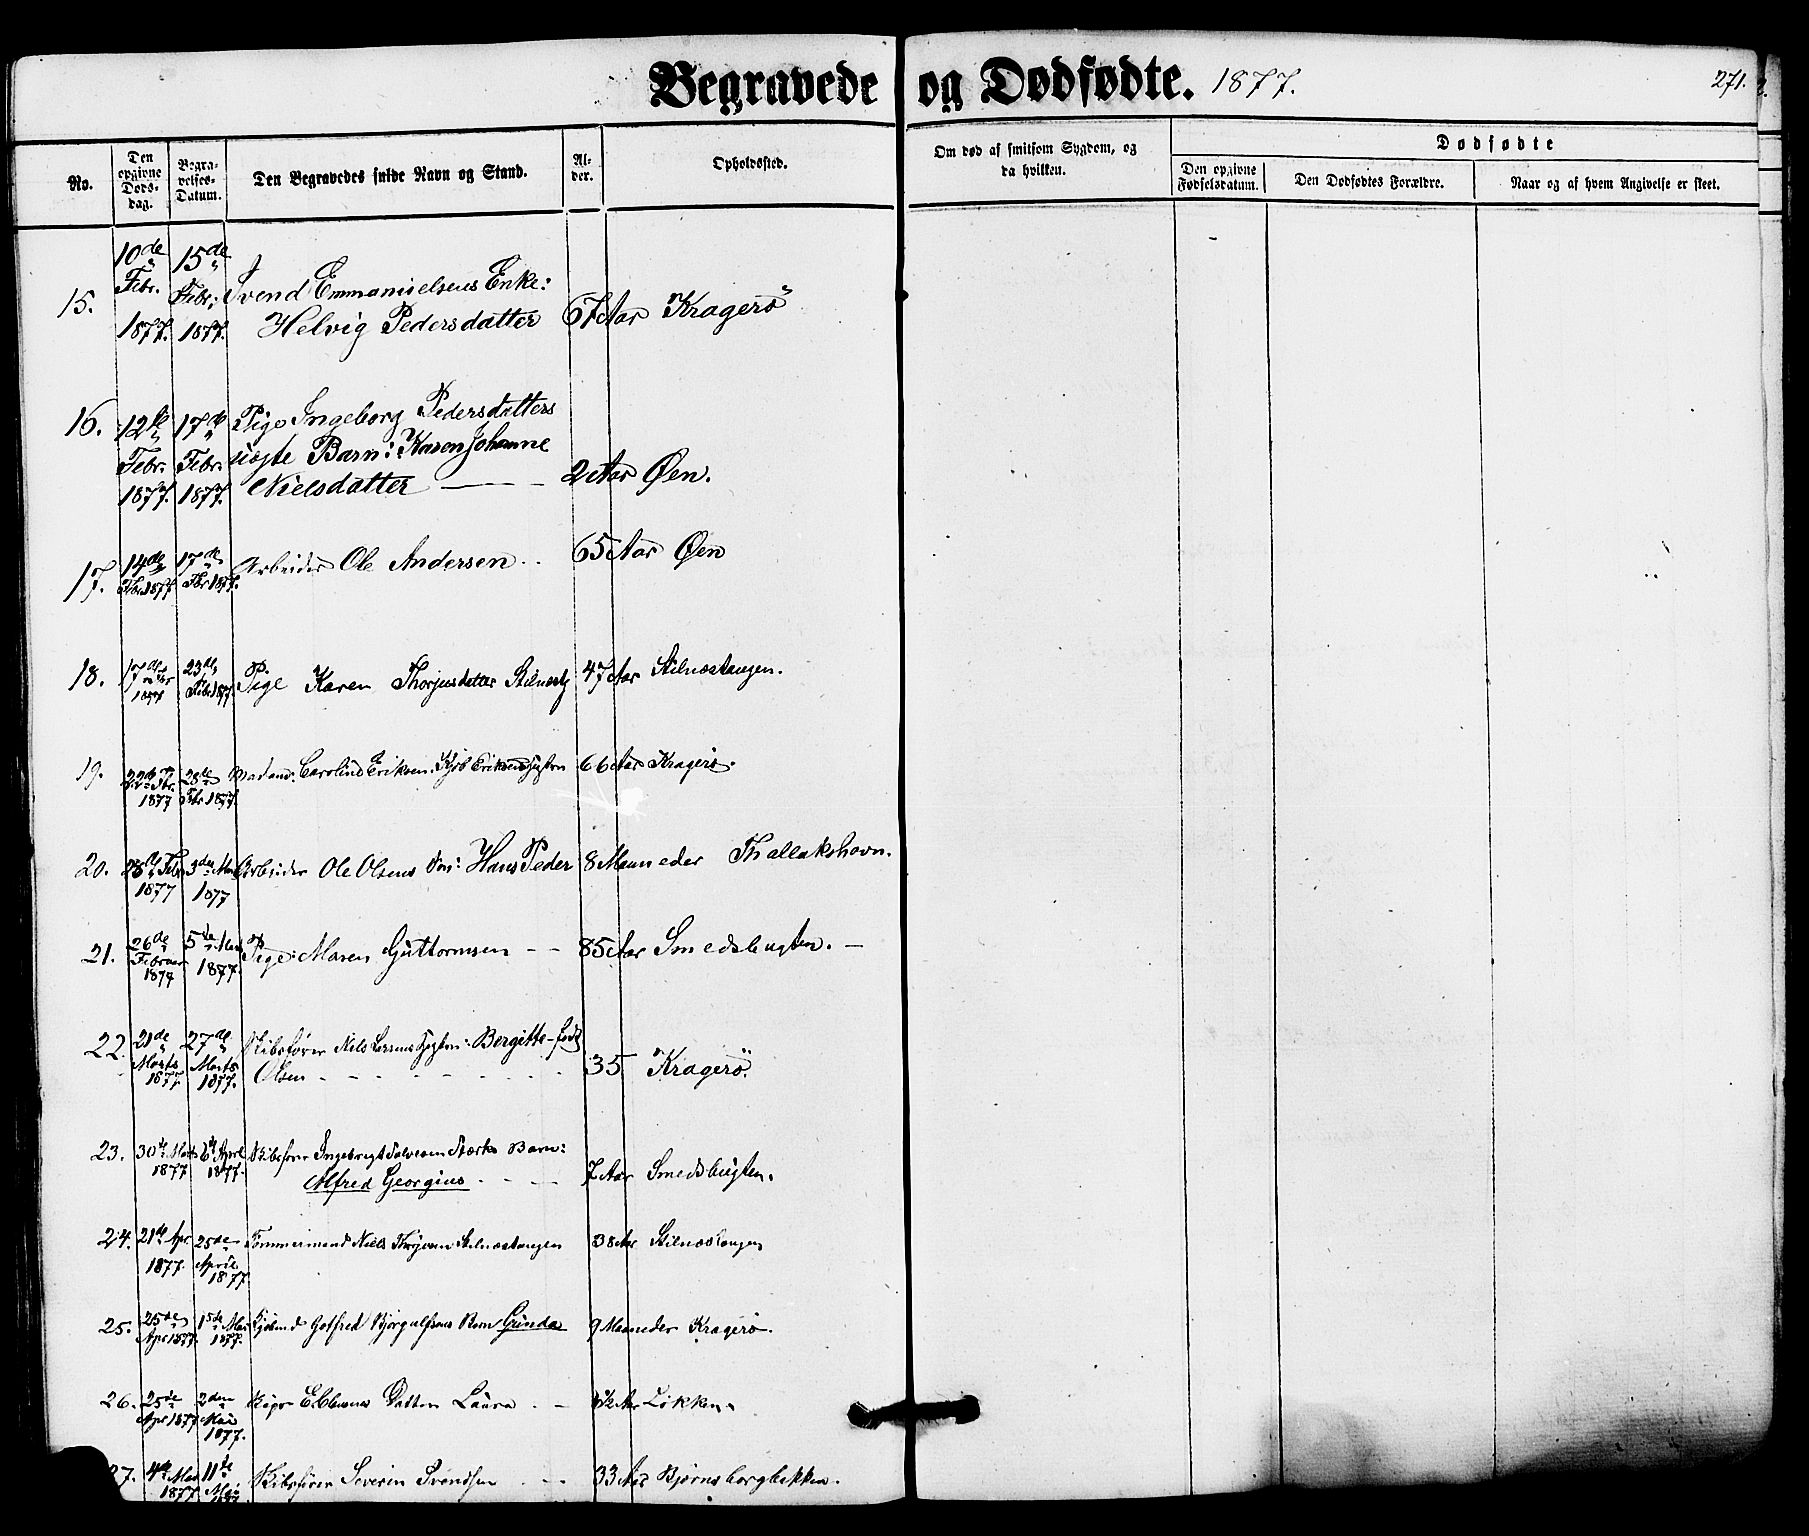 Begravede og Dødfødte. 1877.
271.
No.
Den opgivne Døds-dag.
Begra-velses-Datum.
Den Begravedes fulde Navn og Stand.
Al-der.
Opholdssted.
Om død af smitsom Sygdom, og da hvilken.
Dødfødte
Den opgivne Fødselsdatum.
Den Dødfødtes Forældre.
Naar og af hvem Angivelse er skeet.
15. 10de Febr. 1877. 15de Febr. 1877. Svend Emmanuelsens Enke:
Helvig Pedersdatter 67 Aar Kragerö
16. 12te Febr. 1877. 17de Febr. 1877. Pige Ingeborg Pedersdatters
uægte Barn: Karen Johanne
Nielsdatter 2 Aar Øen.
17. 14de Fbr. 1877 17de Fbr 1877. Arbeider Ole Andersen 65 Aar Øen
18. 17de Fbr 1877 23de Febr 1877. Pige Karen Thorjusdatter 47 Aar Stilnæstangen.
19. 22de Fbr. 1877 28de Fbr 1877. Madam: Caroline Eriksen 66 Aar Kragerö.
20. Febr 1877 3die 1877 Arbeider Ole Olsens Søn: Hans Peder 8 Maaneder Thallakshavn.
21. 26de Februar 1877 5te 1877. Pige: Maren Guttormsen 85 Aar Smedsbugten.
22. 21de Marts 1877. 27de Marts 1877. Skibsfører Nils Bergitte født
Olsen 35 Kragerö.
23. 30te 1877 6te April 1877. Skibsfører Barn:
Alfred Georgius 7 Aar Smedsbugten.
24. 21de Apr. 1877. 25de April 1877. Tømmermand Niels Stilnæstangen 38 Aar Stilnæstangen
25. 25de Apr 1877. 1ste Mai 1877. Gotfred Barn Gunda 9 Maaneder Kragerö.
26. 25de Apr 1877 2den Mai 1877. Datter Laura Løkken.
27. 4de Mai 1877 11te Mai Skibsfører Severin Svendsen 33 Aar Bjørnsborgbakken.